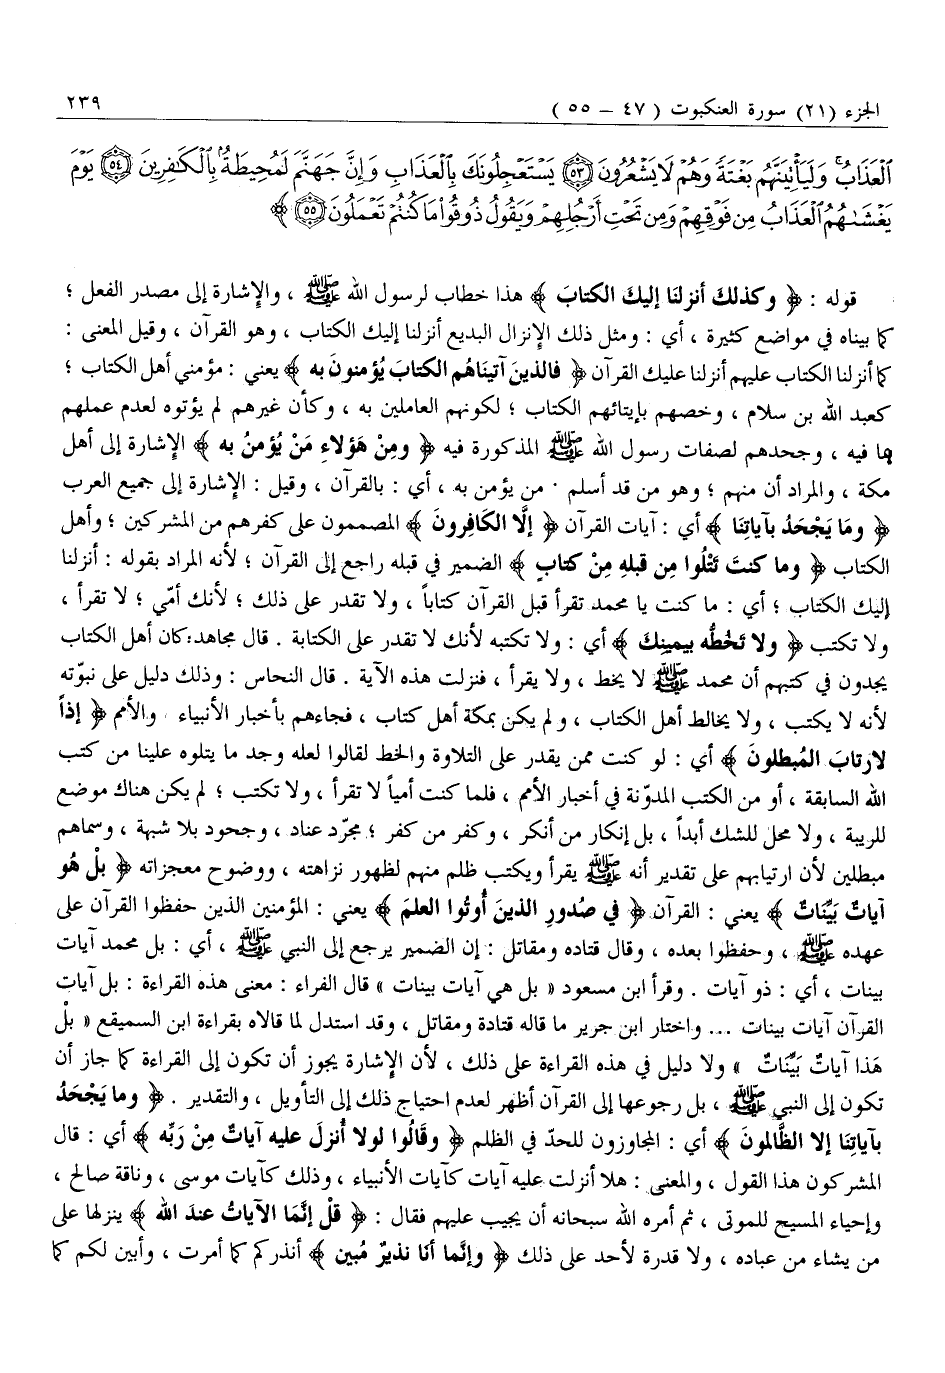 الجزء (٢١) سورة العنكبوت ( ٤٧ – ٥٥ ) ٢٣٩
ٱلْعَذَابُۚ وَلَيَأْتِيَنَّهُم بَغْتَةً وَهُمْ لَا يَشْعُرُونَ ﴿٥٣﴾ يَسْتَعْجِلُونَكَ بِٱلْعَذَابِ وَإِنَّ جَهَنَّمَ لَمُحِيطَةٌۢ بِٱلْكَٰفِرِينَ ﴿٥٤﴾ يَوْمَ
يَغْشَىٰهُمُ ٱلْعَذَابُ مِن فَوْقِهِمْ وَمِن تَحْتِ أَرْجُلِهِمْ وَيَقُولُ ذُوقُوا۟ مَا كُنتُمْ تَعْمَلُونَ ﴿٥٥﴾ ﴾
قوله : ﴿ وكذلكَ أنزلنَا إليكَ الكتابَ ﴾ هذا خطاب لرسول الله ﷺ ، والإشارة إلى مصدر الفعل ؛
كما بيناه في مواضع كثيرة ، أي : ومثل ذلك الإنزال البديع أنزلنا إليك الكتاب ، وهو القرآن ، وقيل المعنى :
كما أنزلنا الكتاب عليهم أنزلنا عليك القرآن ﴿ فالذينَ آتيناهُم الكتابَ يُؤمنونَ به ﴾ يعني : مؤمني أهل الكتاب ؛
كعبد الله بن سلام ، وخصهم بإيتائهم الكتاب ؛ لكونهم العاملين به ، وكأن غيرهم لم يؤتوه لعدم عملهم
بما فيه ، وجحدهم لصفات رسول الله ﷺ المذكورة فيه ﴿ ومِنْ هَؤلاءِ مَنْ يُؤمنُ به ﴾ الإشارة إلى أهل
مكة ، والمراد أن منهم ؛ وهو من قد أسلم ٠ من يؤمن به ، أي : بالقرآن ، وقيل : الإشارة إلى جميع العرب
﴿ ومَا يَجْحَدُ بآياتِنَا ﴾ أي : آيات القرآن ﴿ إلّا الكَافِرونَ ﴾ المصممون على كفرهم من المشركين ؛ وأهل
الكتاب ﴿ وما كنتَ تَتْلُوا مِن قبلهِ مِنْ كتابٍ ﴾ الضمير في قبله راجع إلى القرآن ؛ لأنه المراد بقوله : أنزلنا
إليك الكتاب ؛ أي : ما كنت يا محمد تقرأ قبل القرآن كتاباً ، ولا تقدر على ذلك ؛ لأنك أمّي ؛ لا تقرأ ،
ولا تكتب ﴿ ولا تَخُطُّه بيمينِكَ ﴾ أي : ولا تكتبه لأنك لا تقدر على الكتابة . قال مجاهد: كان أهل الكتاب
يجدون في كتبهم أن محمد ﷺ لا يخط ، ولا يقرأ ، فنزلت هذه الآية . قال النحاس : وذلك دليل على نبوّته
لأنه لا يكتب ، ولا يخالط أهل الكتاب ، ولم يكن بمكة أهل كتاب ، فجاءهم بأخبار الأنبياء والأمم ﴿ إذاً
لارتابَ المُبطلونَ ﴾ أي : لو كنت ممن يقدر على التلاوة والخط لقالوا لعله وجد ما يتلوه علينا من كتب
الله السابقة ، أو من الكتب المدوّنة في أخبار الأمم ، فلما كنت أمياً لا تقرأ ، ولا تكتب ؛ لم يكن هناك موضع
للريبة ، ولا محل للشك أبداً ، بل إنكار من أنكر ، وكفر من كفر ؛ مجرّد عناد ، وجحود بلا شبهة ، وسماهم
مبطلين لأن ارتيابهم على تقدير أنه ﷺ يقرأ ويكتب ظلم منهم لظهور نزاهته ، ووضوح معجزاته ﴿ بلْ هُو
آياتٌ بَيِّنَاتٌ ﴾ يعني : القرآن ﴿ في صُدورِ الذينَ أُوتُوا العلمَ ﴾ يعني : المؤمنين الذين حفظوا القرآن على
عهده ﷺ ، وحفظوا بعده ، وقال قتاده ومقاتل : إن الضمير يرجع إلى النبي ﷺ ، أي : بل محمد آيات
بينات ، أي : ذو آيات . وقرأ ابن مسعود « بل هي آيات بينات » قال الفراء : معنى هذه القراءة : بل آيات
القرآن آيات بينات ... واختار ابن جرير ما قاله قتادة ومقاتل ، وقد استدل لما قالاه بقراءة ابن السميقع « بلْ
هَذا آياتٌ بَيِّنَاتٌ » ولا دليل في هذه القراءة على ذلك ، لأن الإشارة يجوز أن تكون إلى القراءة كما جاز أن
تكون إلى النبي ﷺ ، بل رجوعها إلى القرآن أظهر لعدم احتياج ذلك إلى التأويل ، والتقدير . ﴿ وما يَجْحَدُ
بآياتِنَا إلا الظَّالمونَ ﴾ أي : المجاوزون للحدّ في الظلم ﴿ وقَالُوا لولا أُنزلَ عليه آياتٌ مِنْ رَبِّه ﴾ أي : قال
المشركون هذا القول ، والمعنى : هلا أنزلت عليه آيات كآيات الأنبياء ، وذلك كآيات موسى ، وناقة صالح ،
وإحياء المسيح للموتى ، ثم أمره الله سبحانه أن يجيب عليهم فقال : ﴿ قلْ إنَّمَا الآياتُ عندَ الله ﴾ ينزلها على
من يشاء من عباده ، ولا قدرة لأحد على ذلك ﴿ وإنَّما أنا نذيرٌ مُبين ﴾ أنذركم كما أمرت ، وأبين لكم كما